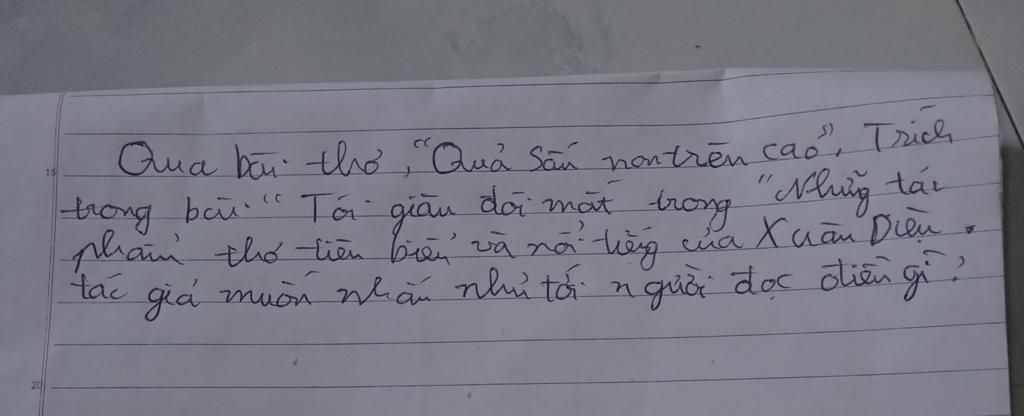 Qua bài thơ, "Quả Sấu non trên cao", Trích
trong bài "Tôi giàu đôi mắt trong "Những tác
phẩm thơ tiêu biểu và nổi tiếng của Xuân Diệu.
tác giả muốn nhắn nhủ tới người đọc điều gì?
15
20